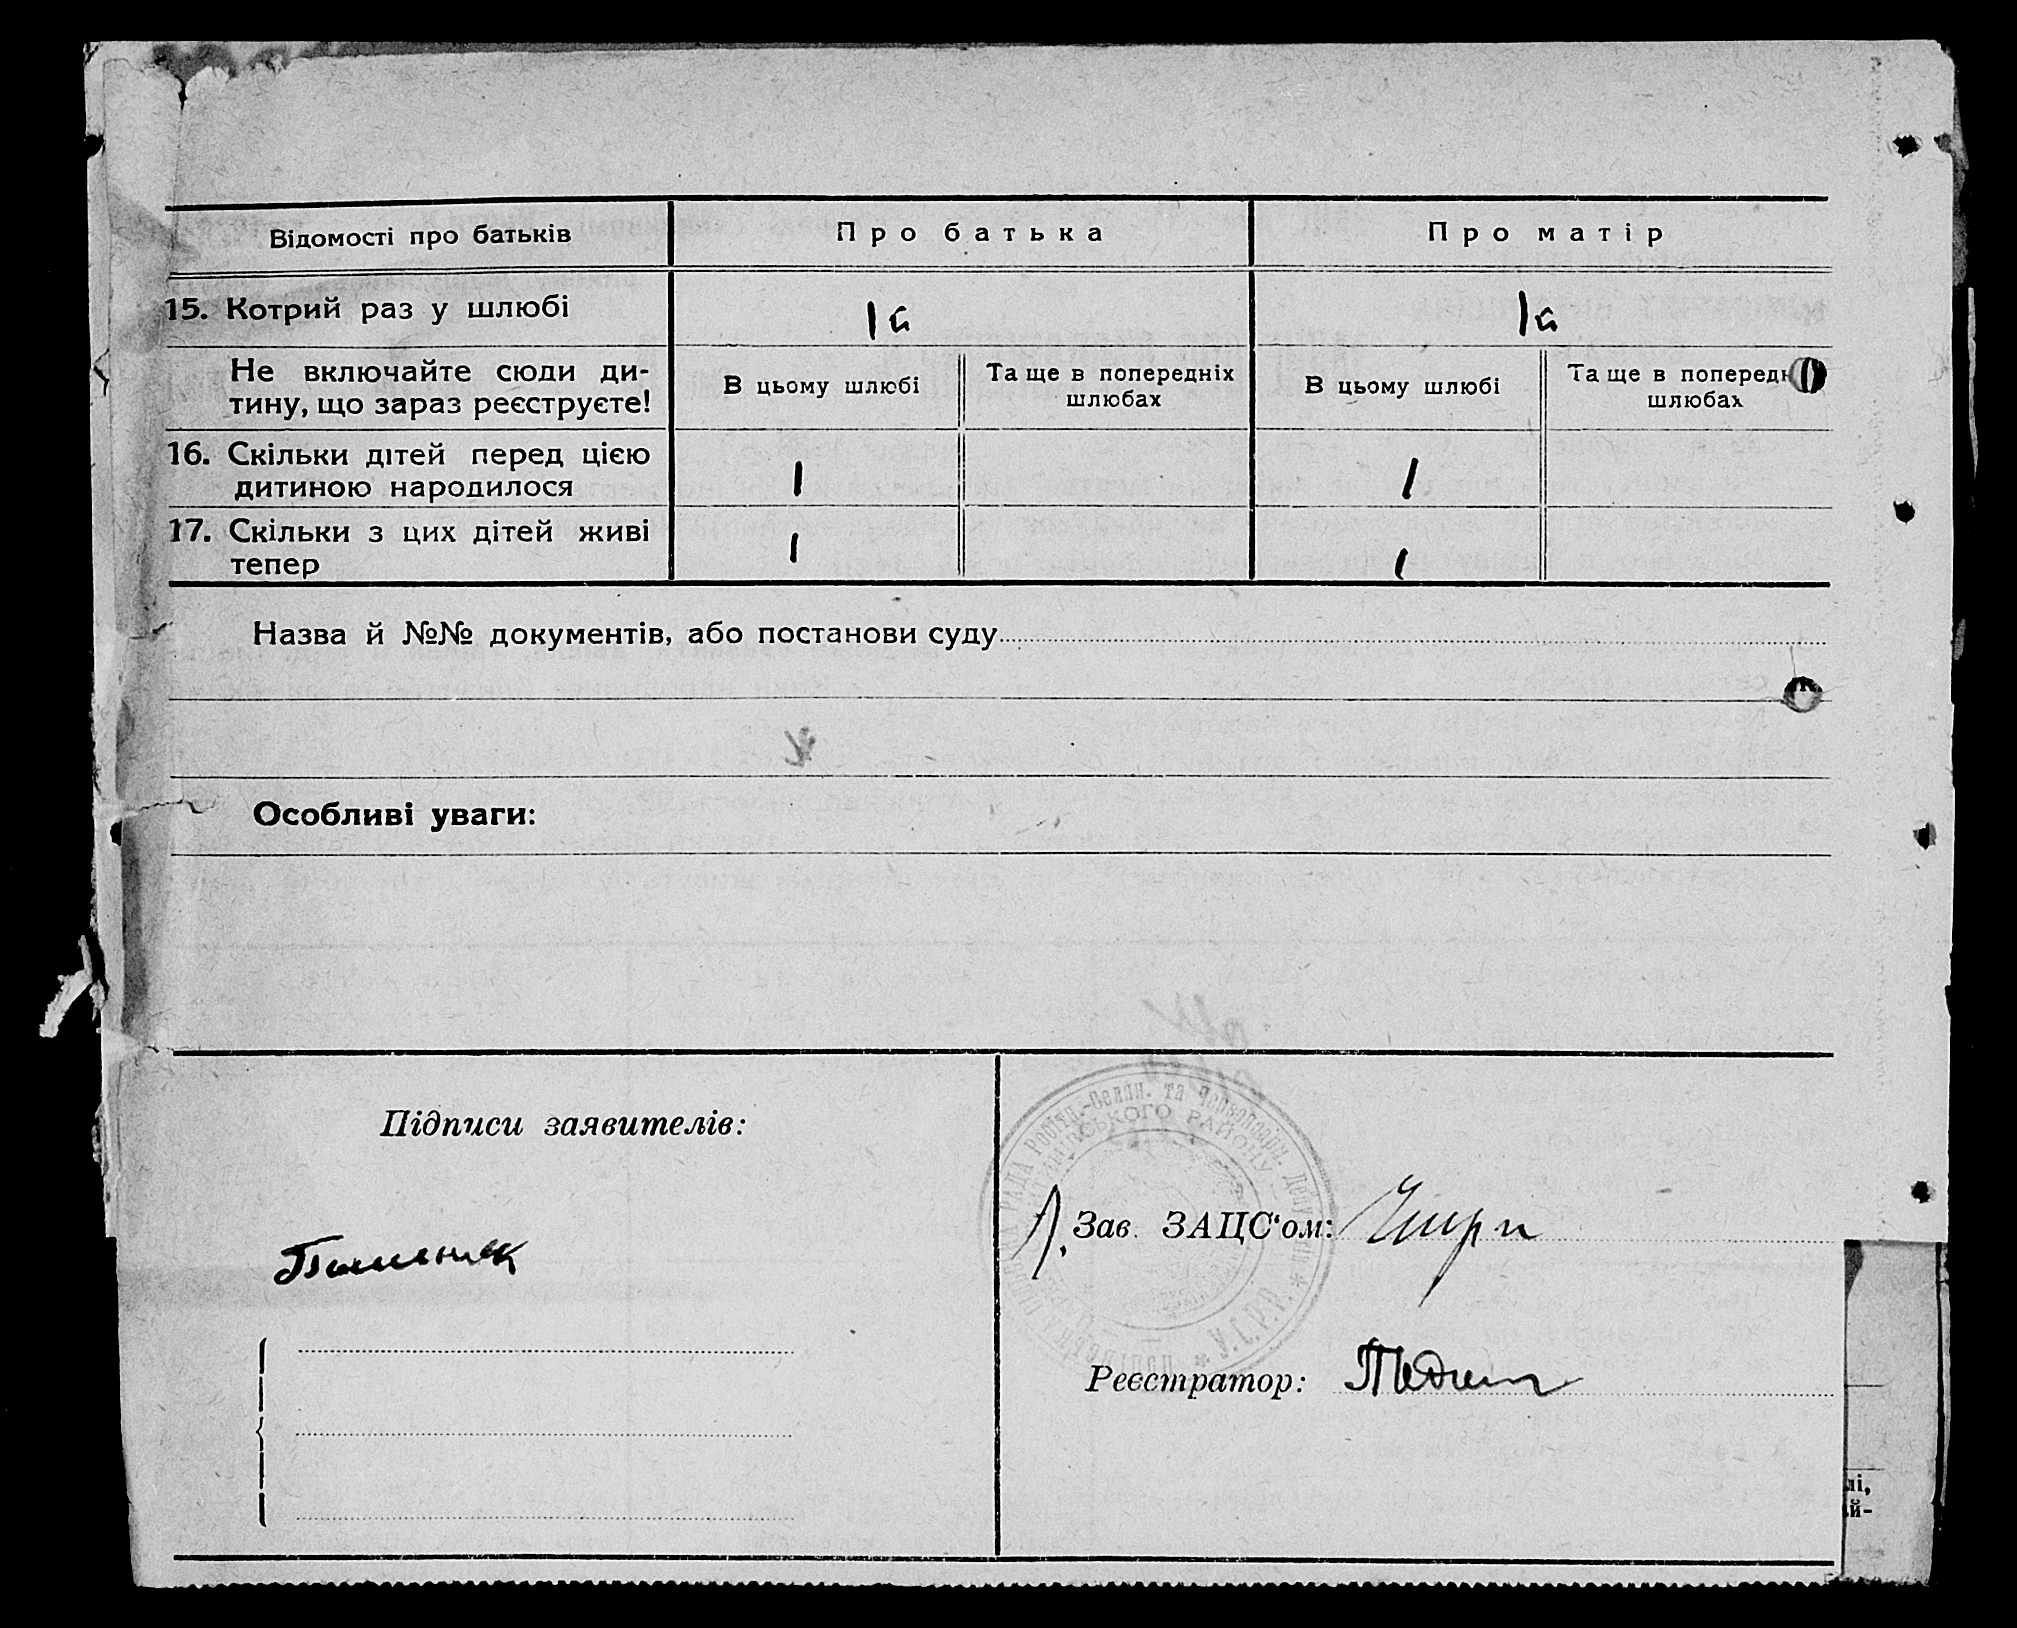 Відомості про батьків
Про батька
Про матір
15. Котрий раз у шлюбі
1й
1й
Не включайте сюди ди-
тину, що зараз реєструєте!
В цьому шлюбі
Та ще в попередніх
шлюбах
В цьому шлюбі
Та ще в поперед
шлюбах
16. Скільки дітей перед цією
дитиною народилося
1
1
17. Скільки з цих дітей живі
тепер
1
1
Назва й №№ документів, або постанови суду
Особливі уваги:
Підписи заявителів:
РАДА Робітн.-Селян. та Червоноарм.
РАЙОНУ
У.С.Р.Р.
Зав. ЗАЦС'ом:
Реєстратор:
лі,
ій-